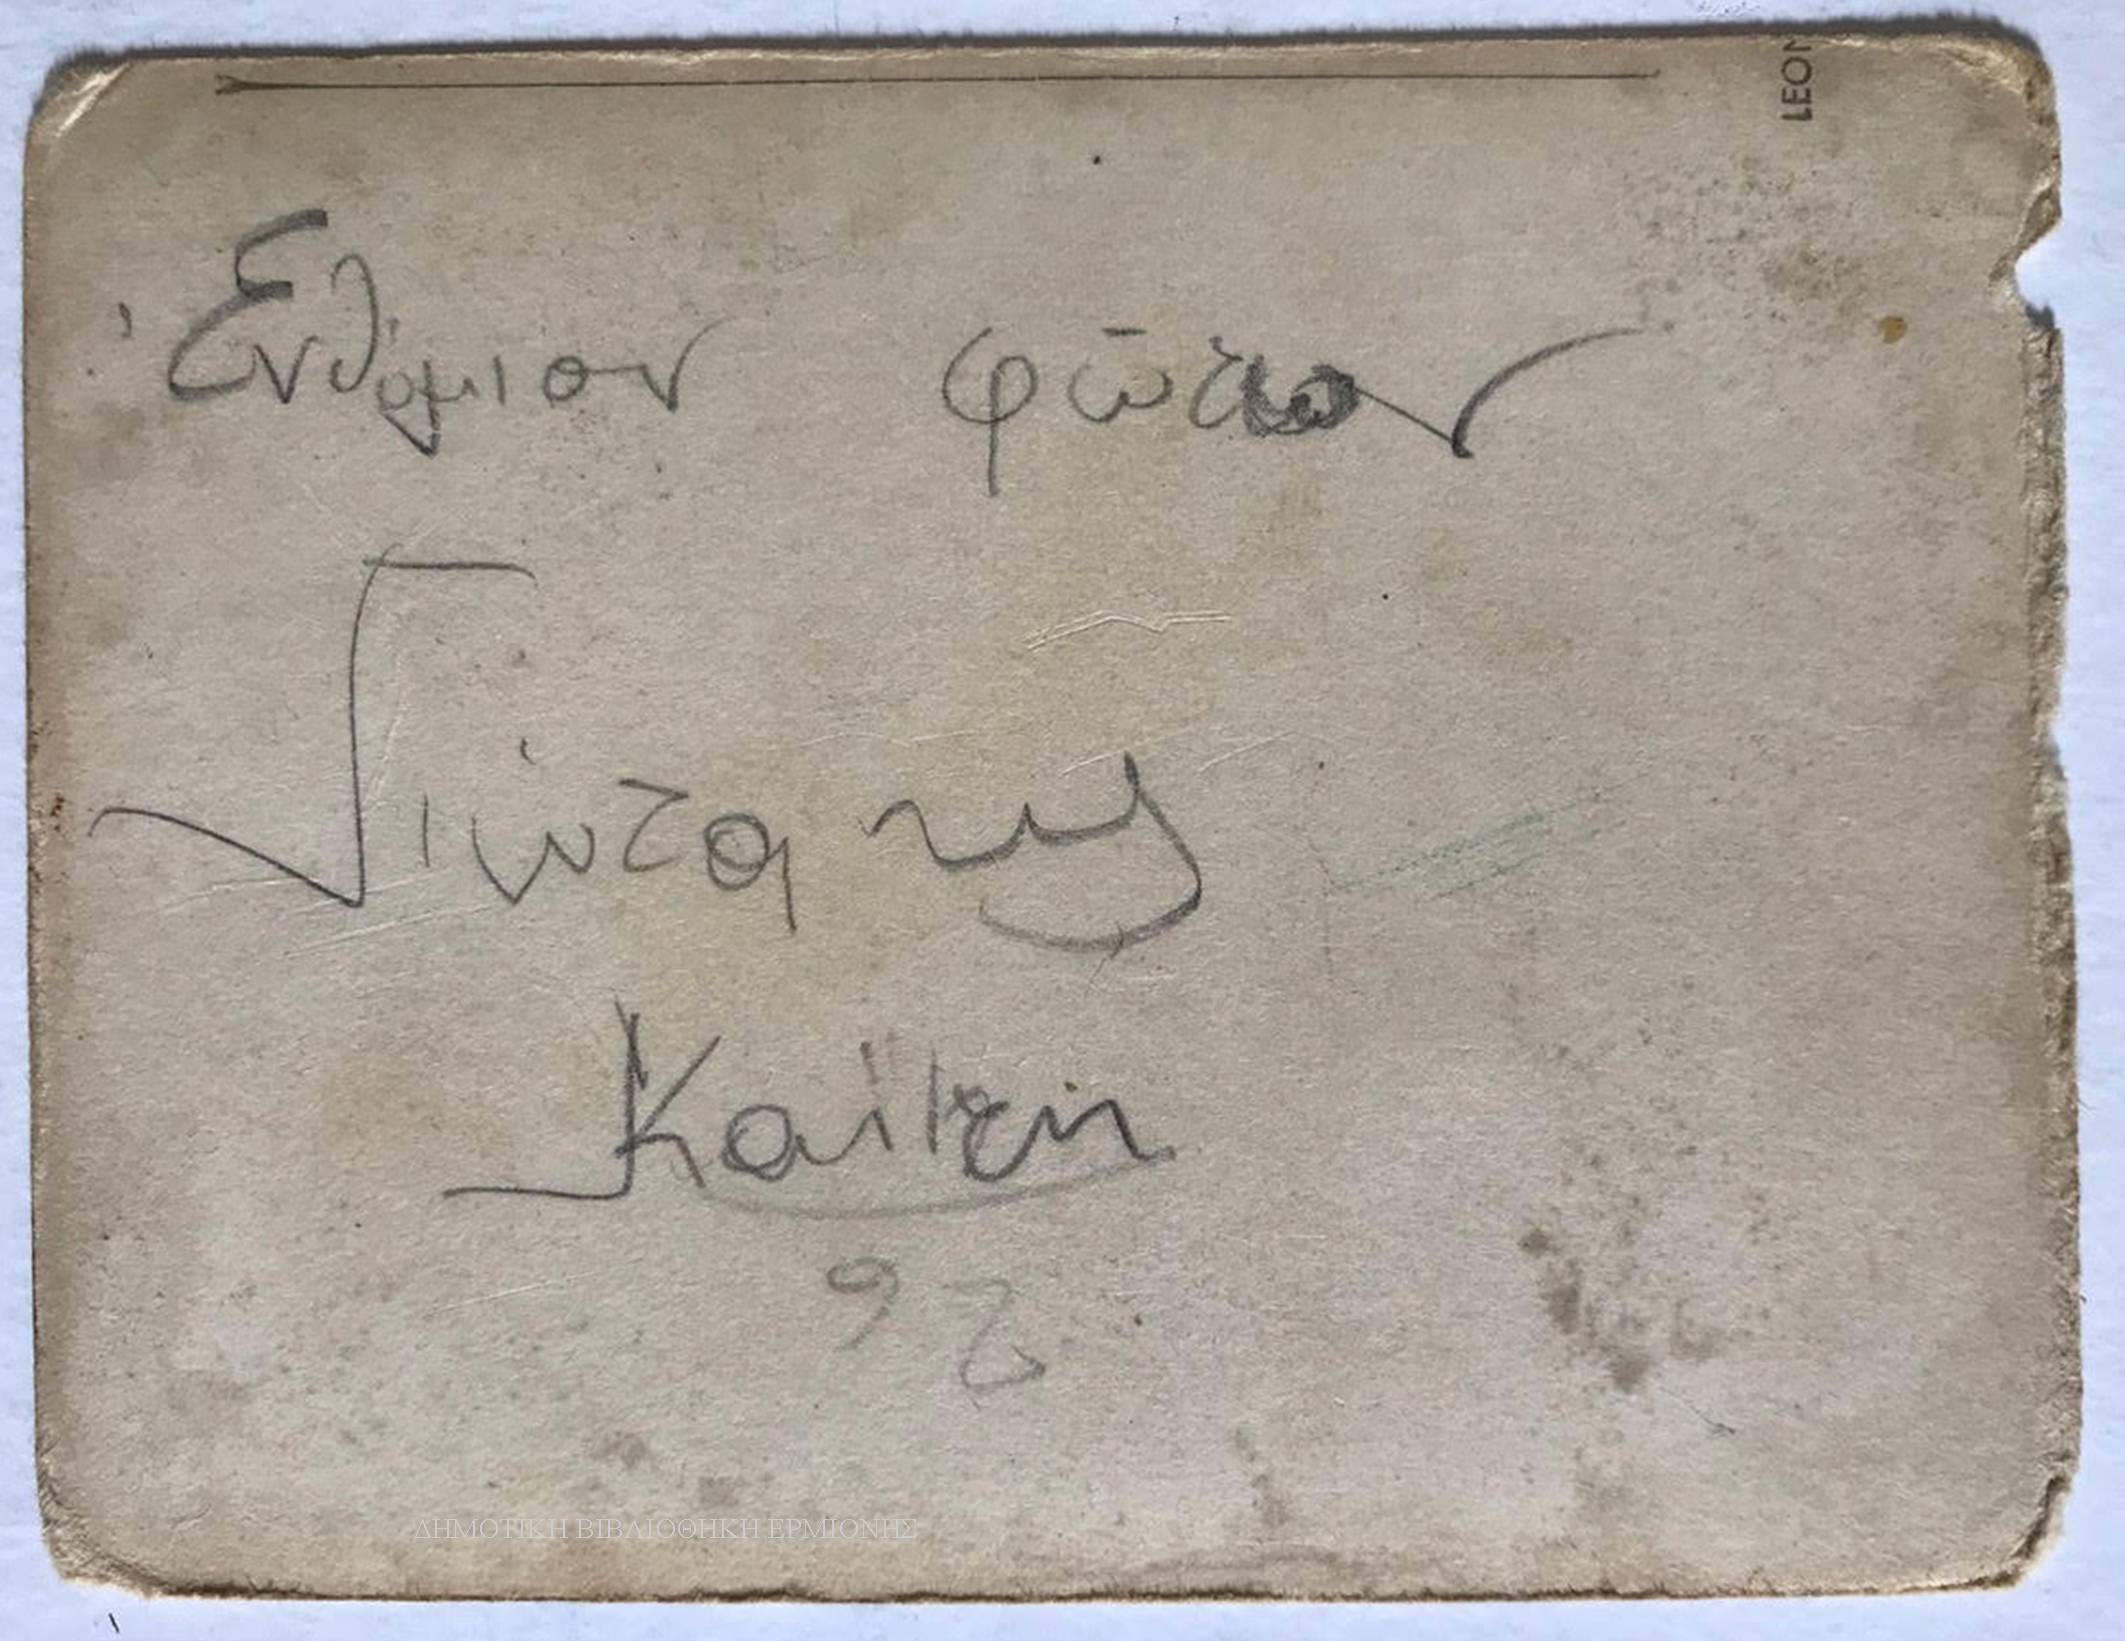 LEON
Ἐνθύμιον φώτων
Καΐκι
92
ΔΗΜΟΤΙΚΗ ΒΙΒΛΙΟΘΗΚΗ ΕΡΜΙΟΝΗΣ